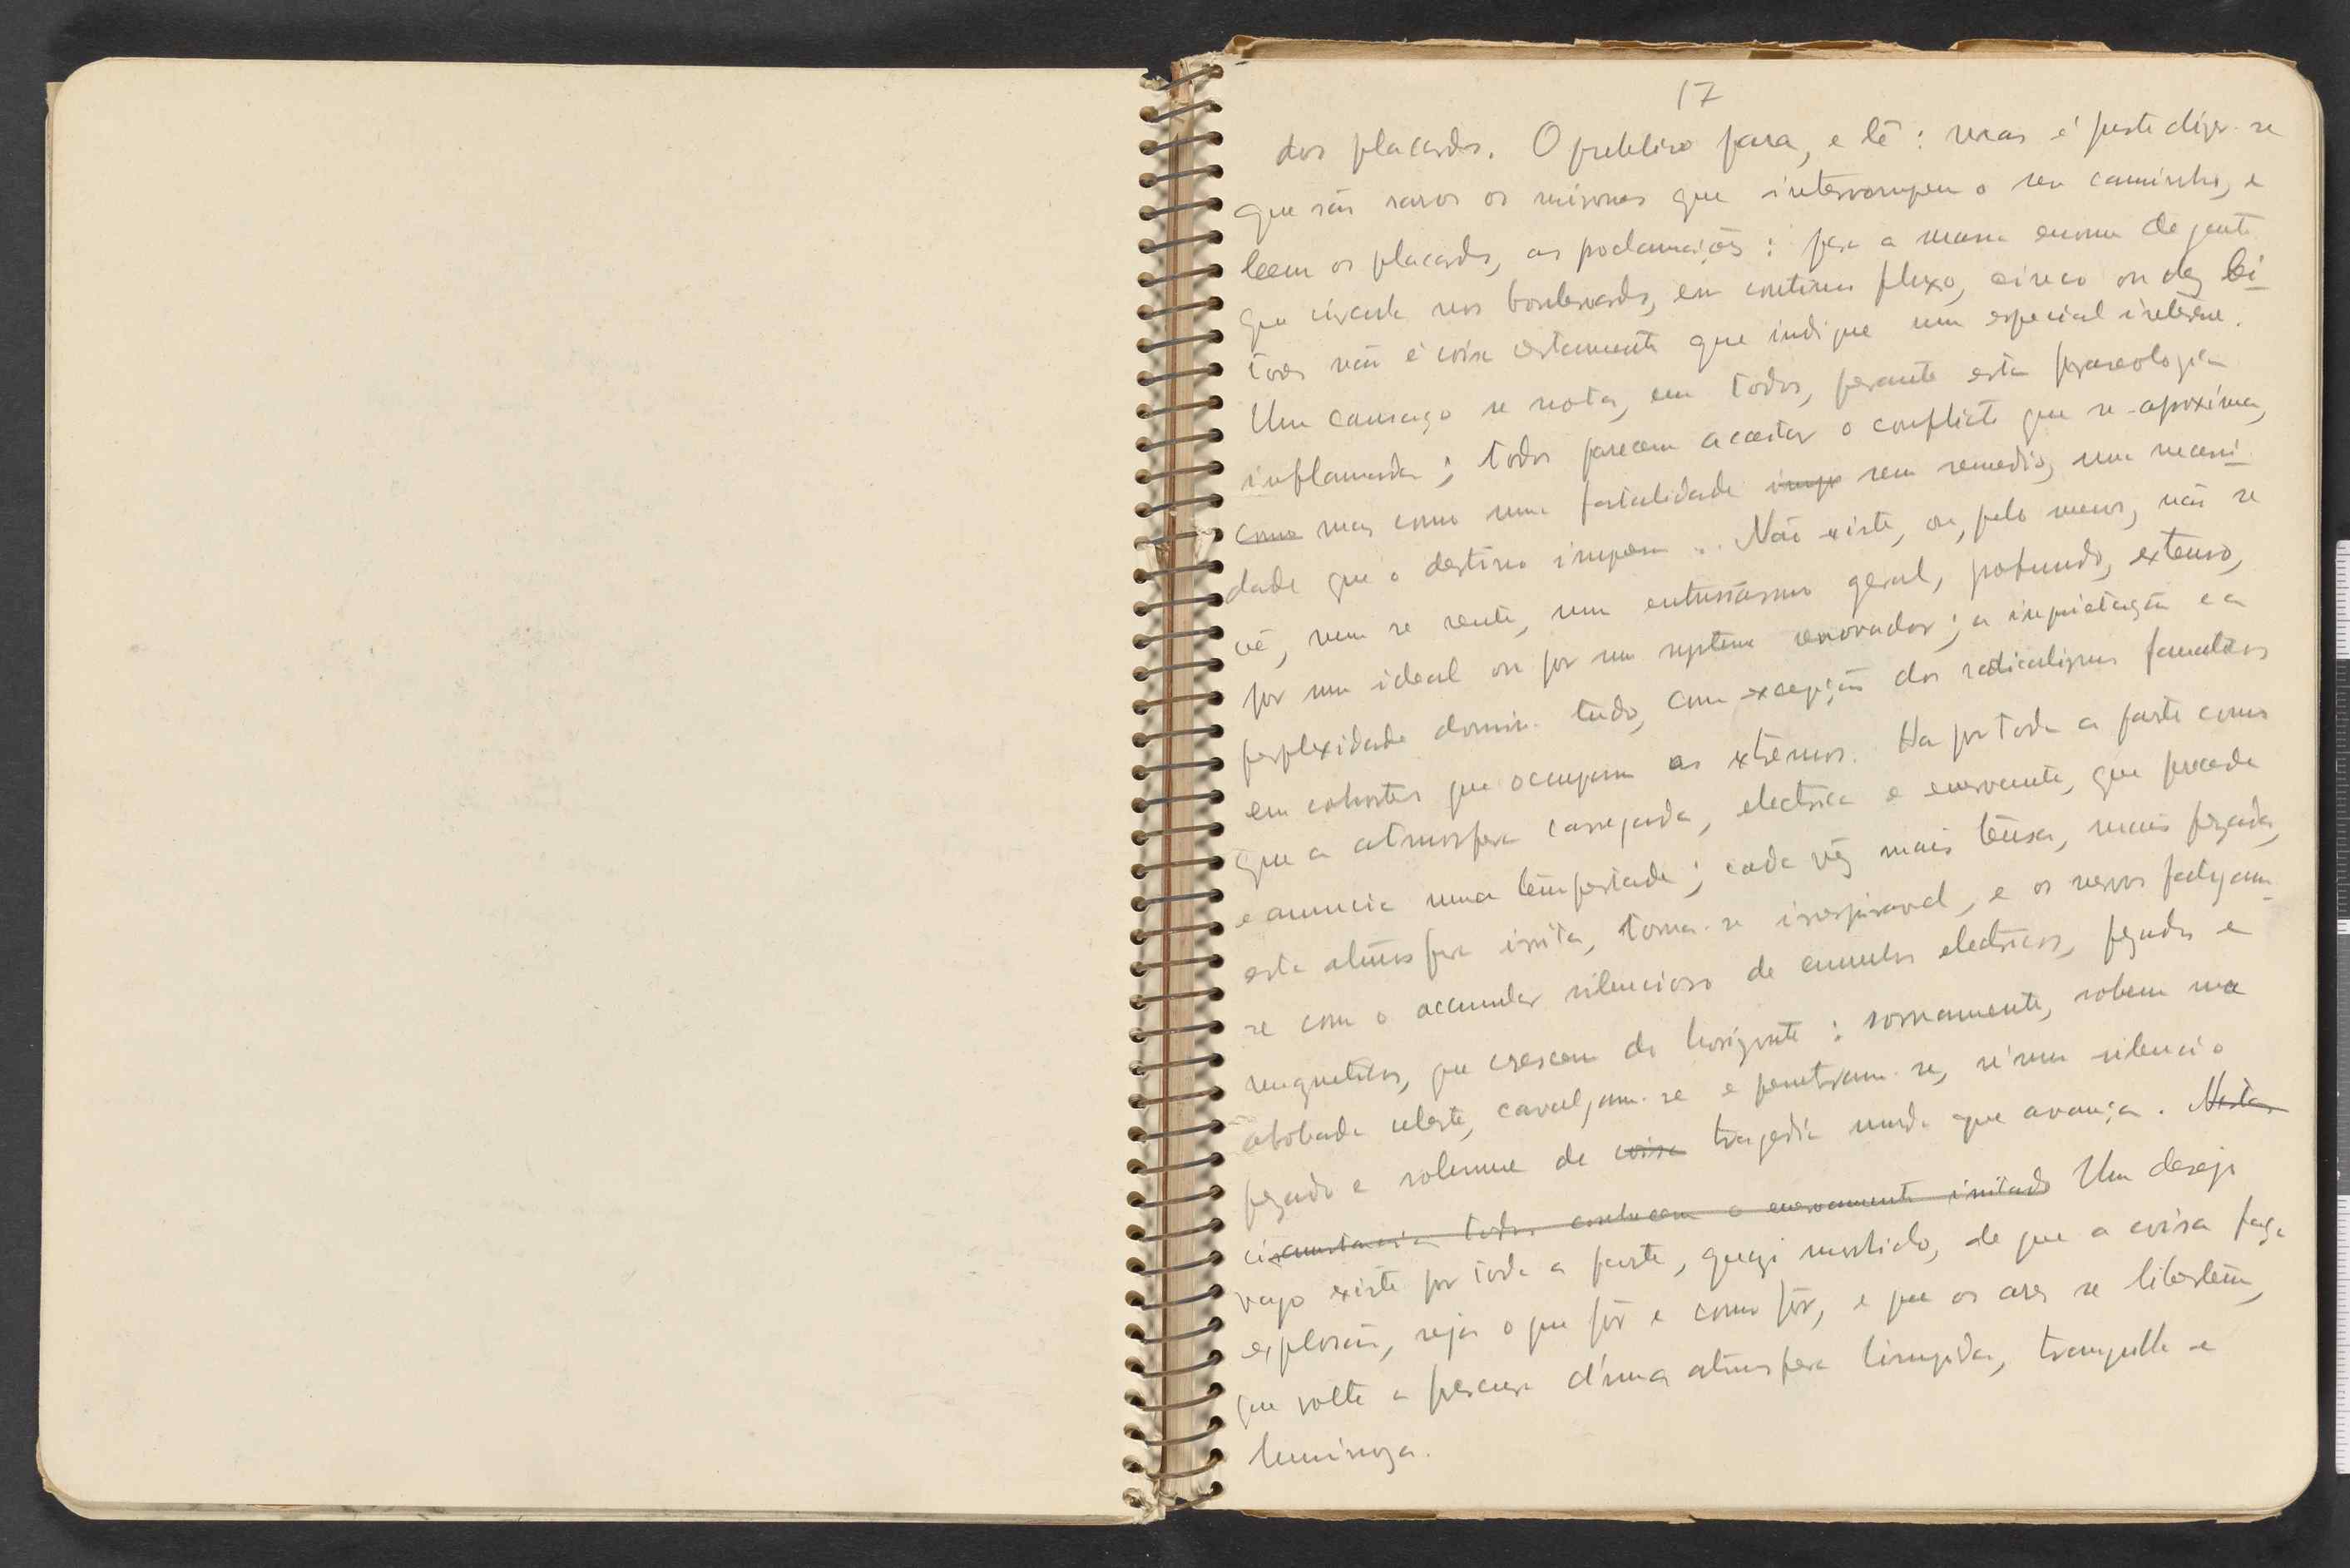 17
dos placards. O publico para, e lê: mas é justo dizer-se
que são raros os mirones que interrompem o seu caminho, e
leem os placards, as proclamações: para a massa enorme de gente
que circula nos boulevards, em continuo fluxo, cinco ou dez lei-
tores não é coisa certamente que indique um especial interesse.
Um cansaço se nota, em todos, perante esta fraseologia
inflamada; todos parecem aceitar o conflicto que se aproxima,
como mas como uma fatalidade sem remedio, uma necessi-
dade que o destino impõem... Não existe, ou, pelo menos, não se
vê, nem se sente, um entusiasmo geral, profundo, extenso,
por um ideal ou por um systema renovador; a inquietação e a
perplexidade domina tudo, com excepção dos radicalismos fanaticos
em cohortes que occupam os extremos. Ha por toda a parte como
que a atmosfera carregada, electrica e enervante, que precede
e anuncia uma tempestade; cada vêz mais tensa, mais pezada,
esta atmosfera irrita, torna-se irrespiravel, e os nervos fatigam-
se com o accumular silencioso de cumulos electricos, pezados e
magneticos, que crescem do horizonte: sornamente, sobem na
abobada celeste, cavalgam-se e penetram-se, n'um silencio
pezado e solemne de coisa tragedia muda que avança. Nestas
circunstancias todos conhecem o enervamento irritado Um desejo
vago existe por toda a parte, quazi morbido, de que a coisa faça
explosão, seja o que fôr e como fôr, e que os ares se libertem,
que volte a frescura d'uma atmosfera limpida, tranquilla e
luminoza.